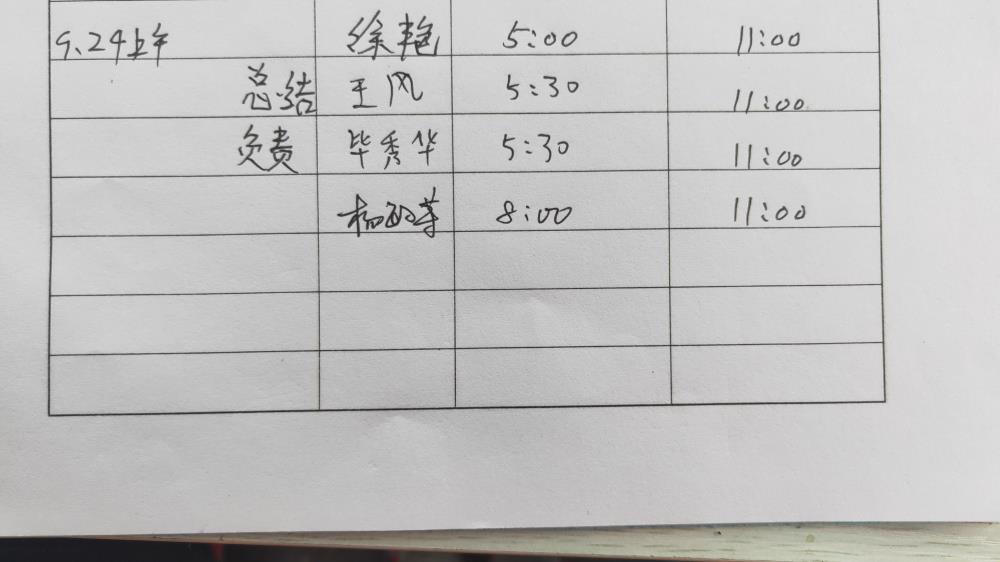 9.24上午 徐艳 5:00 11:00
总结 王风 5:30 11:00
免费 毕秀华 5:30 11:00
杨 8:00 11:00